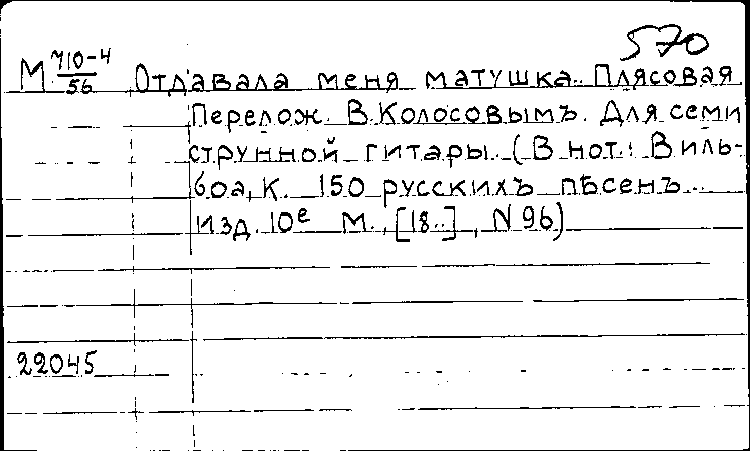 570
М 710-4/56 Отдавала меня матушка. Плясовая.
Перелож. В. Колосовымъ. Для семи
струнной гитары. (В нот.: Виль-
боа, К. 150 русскихъ пѣсенъ...
Изд. 10е М., [18..], N 96)
22045